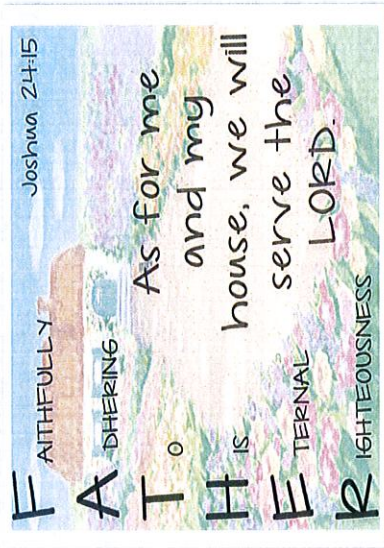 FAITHFULLY
ADHERING
TO
HIS
ETERNAL
RIGHTEOUSNESS
Joshua 24:15
As for me
and my
house, we will
serve the
LORD.